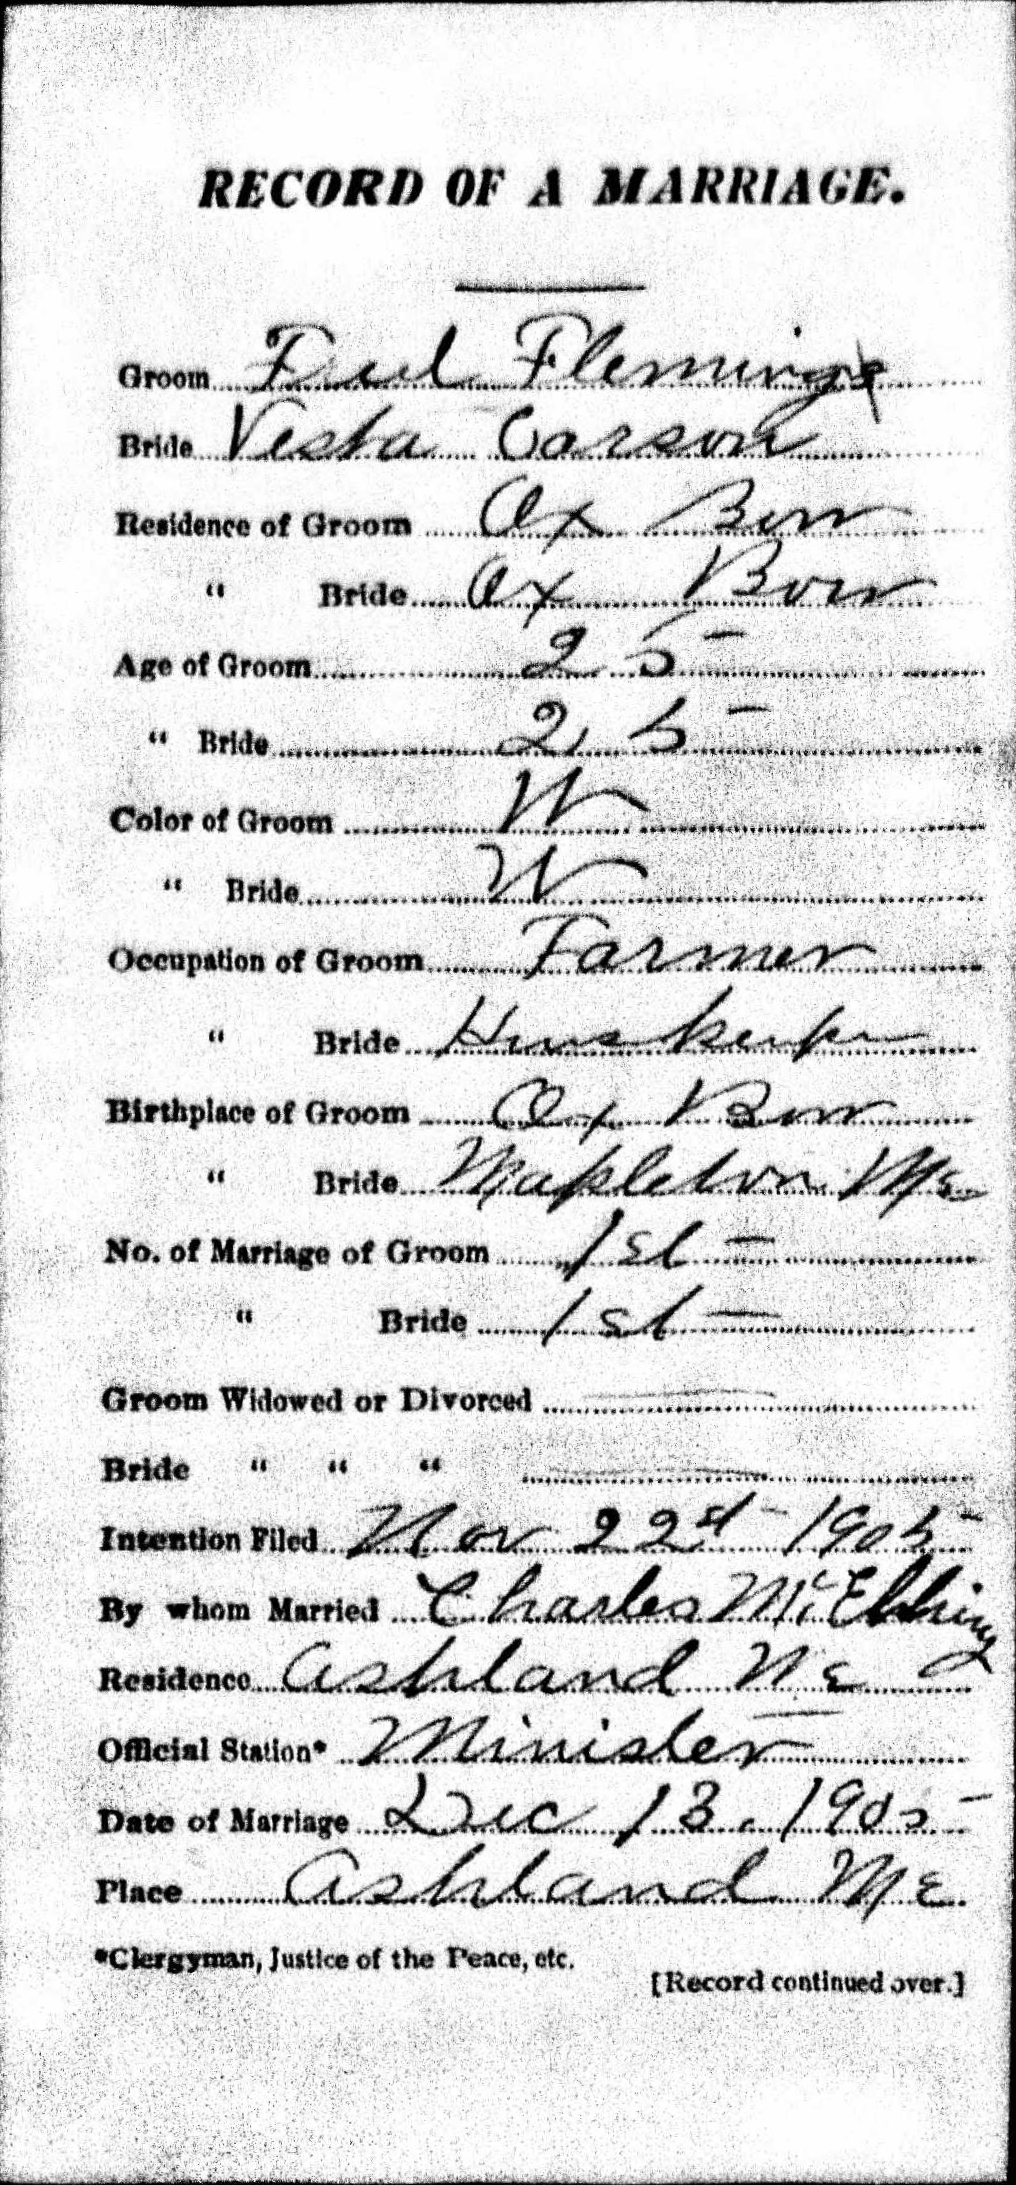 RECORD OF A MARRIAGE.
Groom Fred Fleming
Bride Vesta Carson
Residence of Groom Ox Bow
" Bride Ox Bow
Age of Groom 25
" Bride 25
Color of Groom W
" Bride W
Occupation of Groom Farmer
" Bride Housekeeper
Birthplace of Groom Ox Bow
" Bride Mapleton Me
No. of Marriage of Groom 1st
" Bride 1st
Groom Widowed or Divorced
Bride " " "
Intention Filed Nov 22st 1905
By whom Married Charles
Residence Ashland Me
Official Station* Minister
Date of Marriage Dec 13. 1905
Place Ashland Me.
*Clergyman, Justice of the Peace, etc.
[Record continued over.]